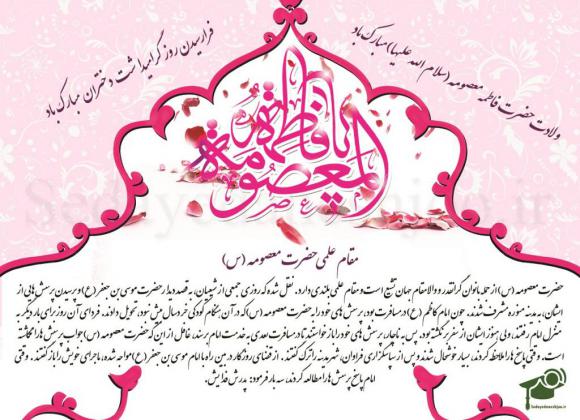 فرارسیدن روز گرامیداشت دختران مبارک باد
ولادت حضرت فاطمه معصومه (سلام الله علیها) مبارک باد
یا فاطمة المعصومة
مقام علمی حضرت معصومه (س)
حضرت معصومه (س) از جمله بانوان گرانقدر و والامقام جهان تشیع است و مقام علمی بلندی دارد. نقل شده که روزی جمعی از شیعیان، به قصد دیدار حضرت موسی بن جعفر (ع) و پرسیدن پرسش هایی از
ایشان، به مدینه منوره مشرف شدند. چون امام کاظم (ع) در مسافرت بود، پرسش های خود را به حضرت معصومه (س) که در آن هنگام کودکی خردسال بیش نبود، تحویل دادند. فردای آن روز برای بار دیگر به
منزل امام رفتند، ولی هنوز ایشان از سفر برنگشته بود. پس به ناچار، پرسش های خود را باز خواستند تا در مسافرت بعدی به خدمت امام برسند، غافل از این که حضرت معصومه (س) جواب پرسش ها را نگاشته
است. وقتی پاسخ ها را ملاحظه کردند، بسیار خوشحال شدند و پس از سپاسگزاری فراوان، شهر مدینه را ترک گفتند. از قضای روزگار در بین راه با امام موسی بن جعفر (ع) مواجه شده، ماجرای خویش را باز گفتند. وقتی
امام پاسخ پرسش ها را مطالعه کردند، سه بار فرمود: پدرش فدایش.
Sedayedaneshjoo.ir